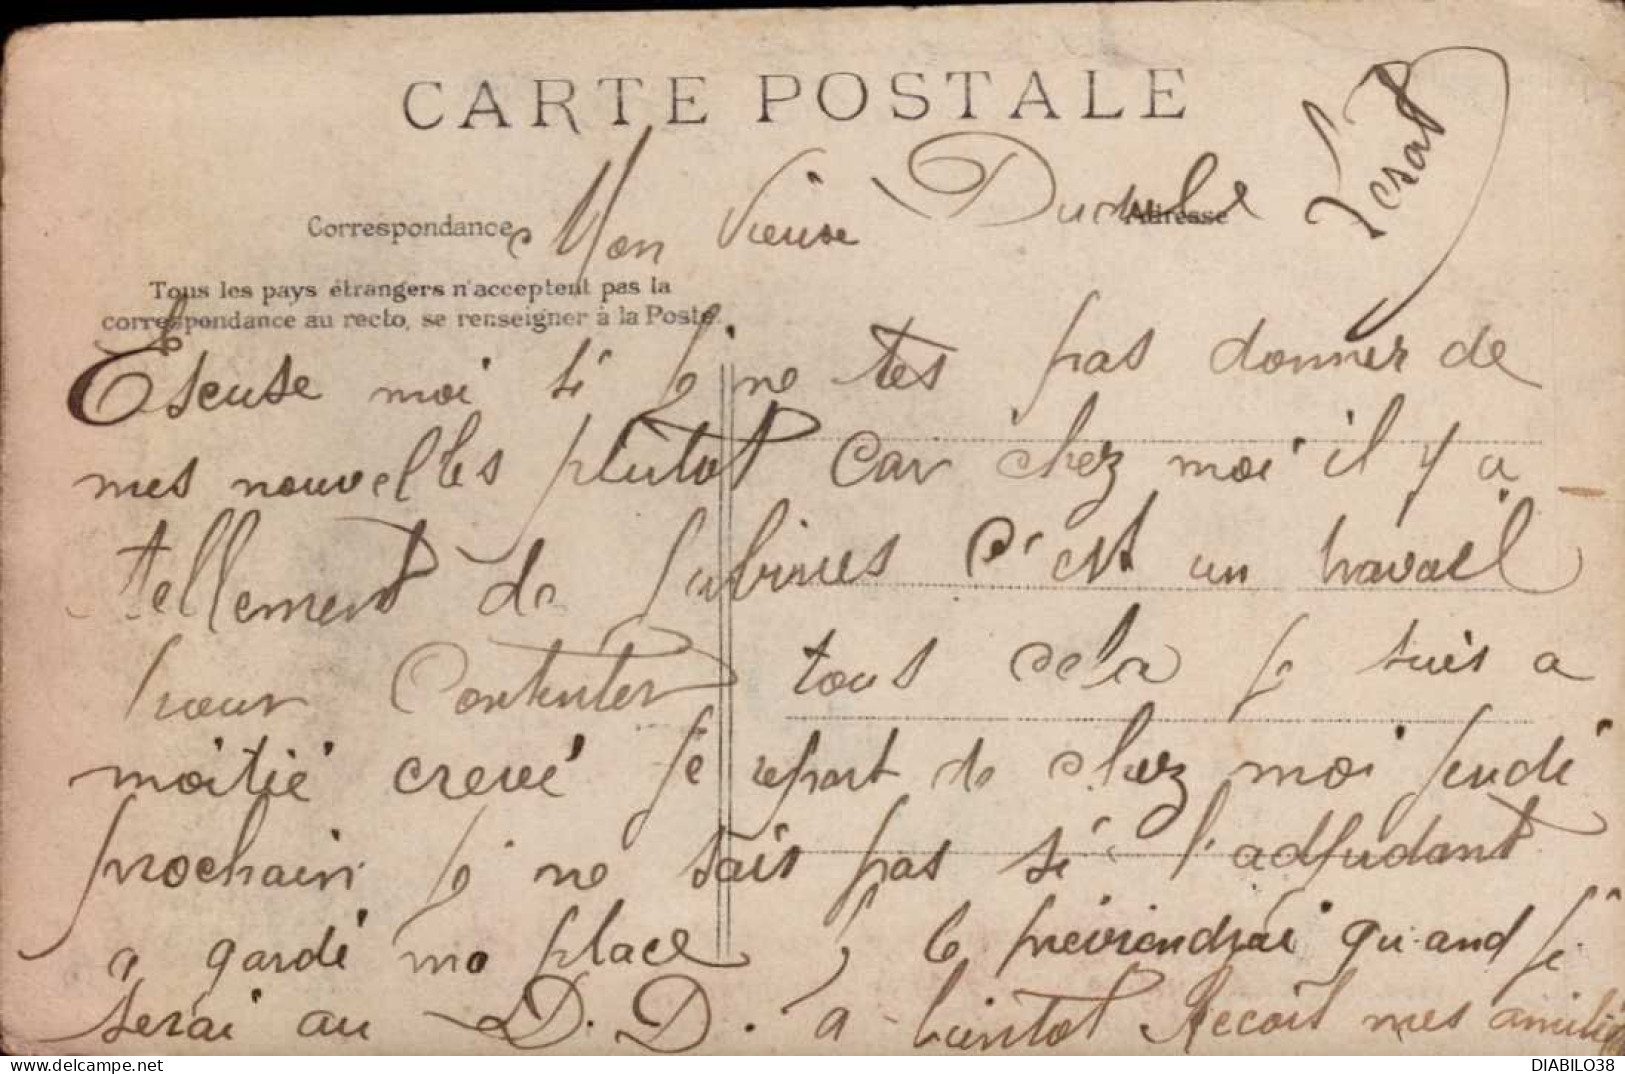 CARTE POSTALE
Correspondance
Adresse
Mon Vieux
Tous les pays étrangers n'acceptent pas la
correspondance au recto, se renseigner à la Poste.
Escuse moi si je ne tes pas donner de
mes nouvelles plutot Car chez moi il y a
tellement de c'est un travail
pour Contenter tous cela je suis a
moitié crevé je repart de chez moi jeudi
prochain je ne sais pas si l'adjudant
a garde ma place je le previendrai quand je
serai au D. D. a bientot Recois mes amitiés
DIABILO38